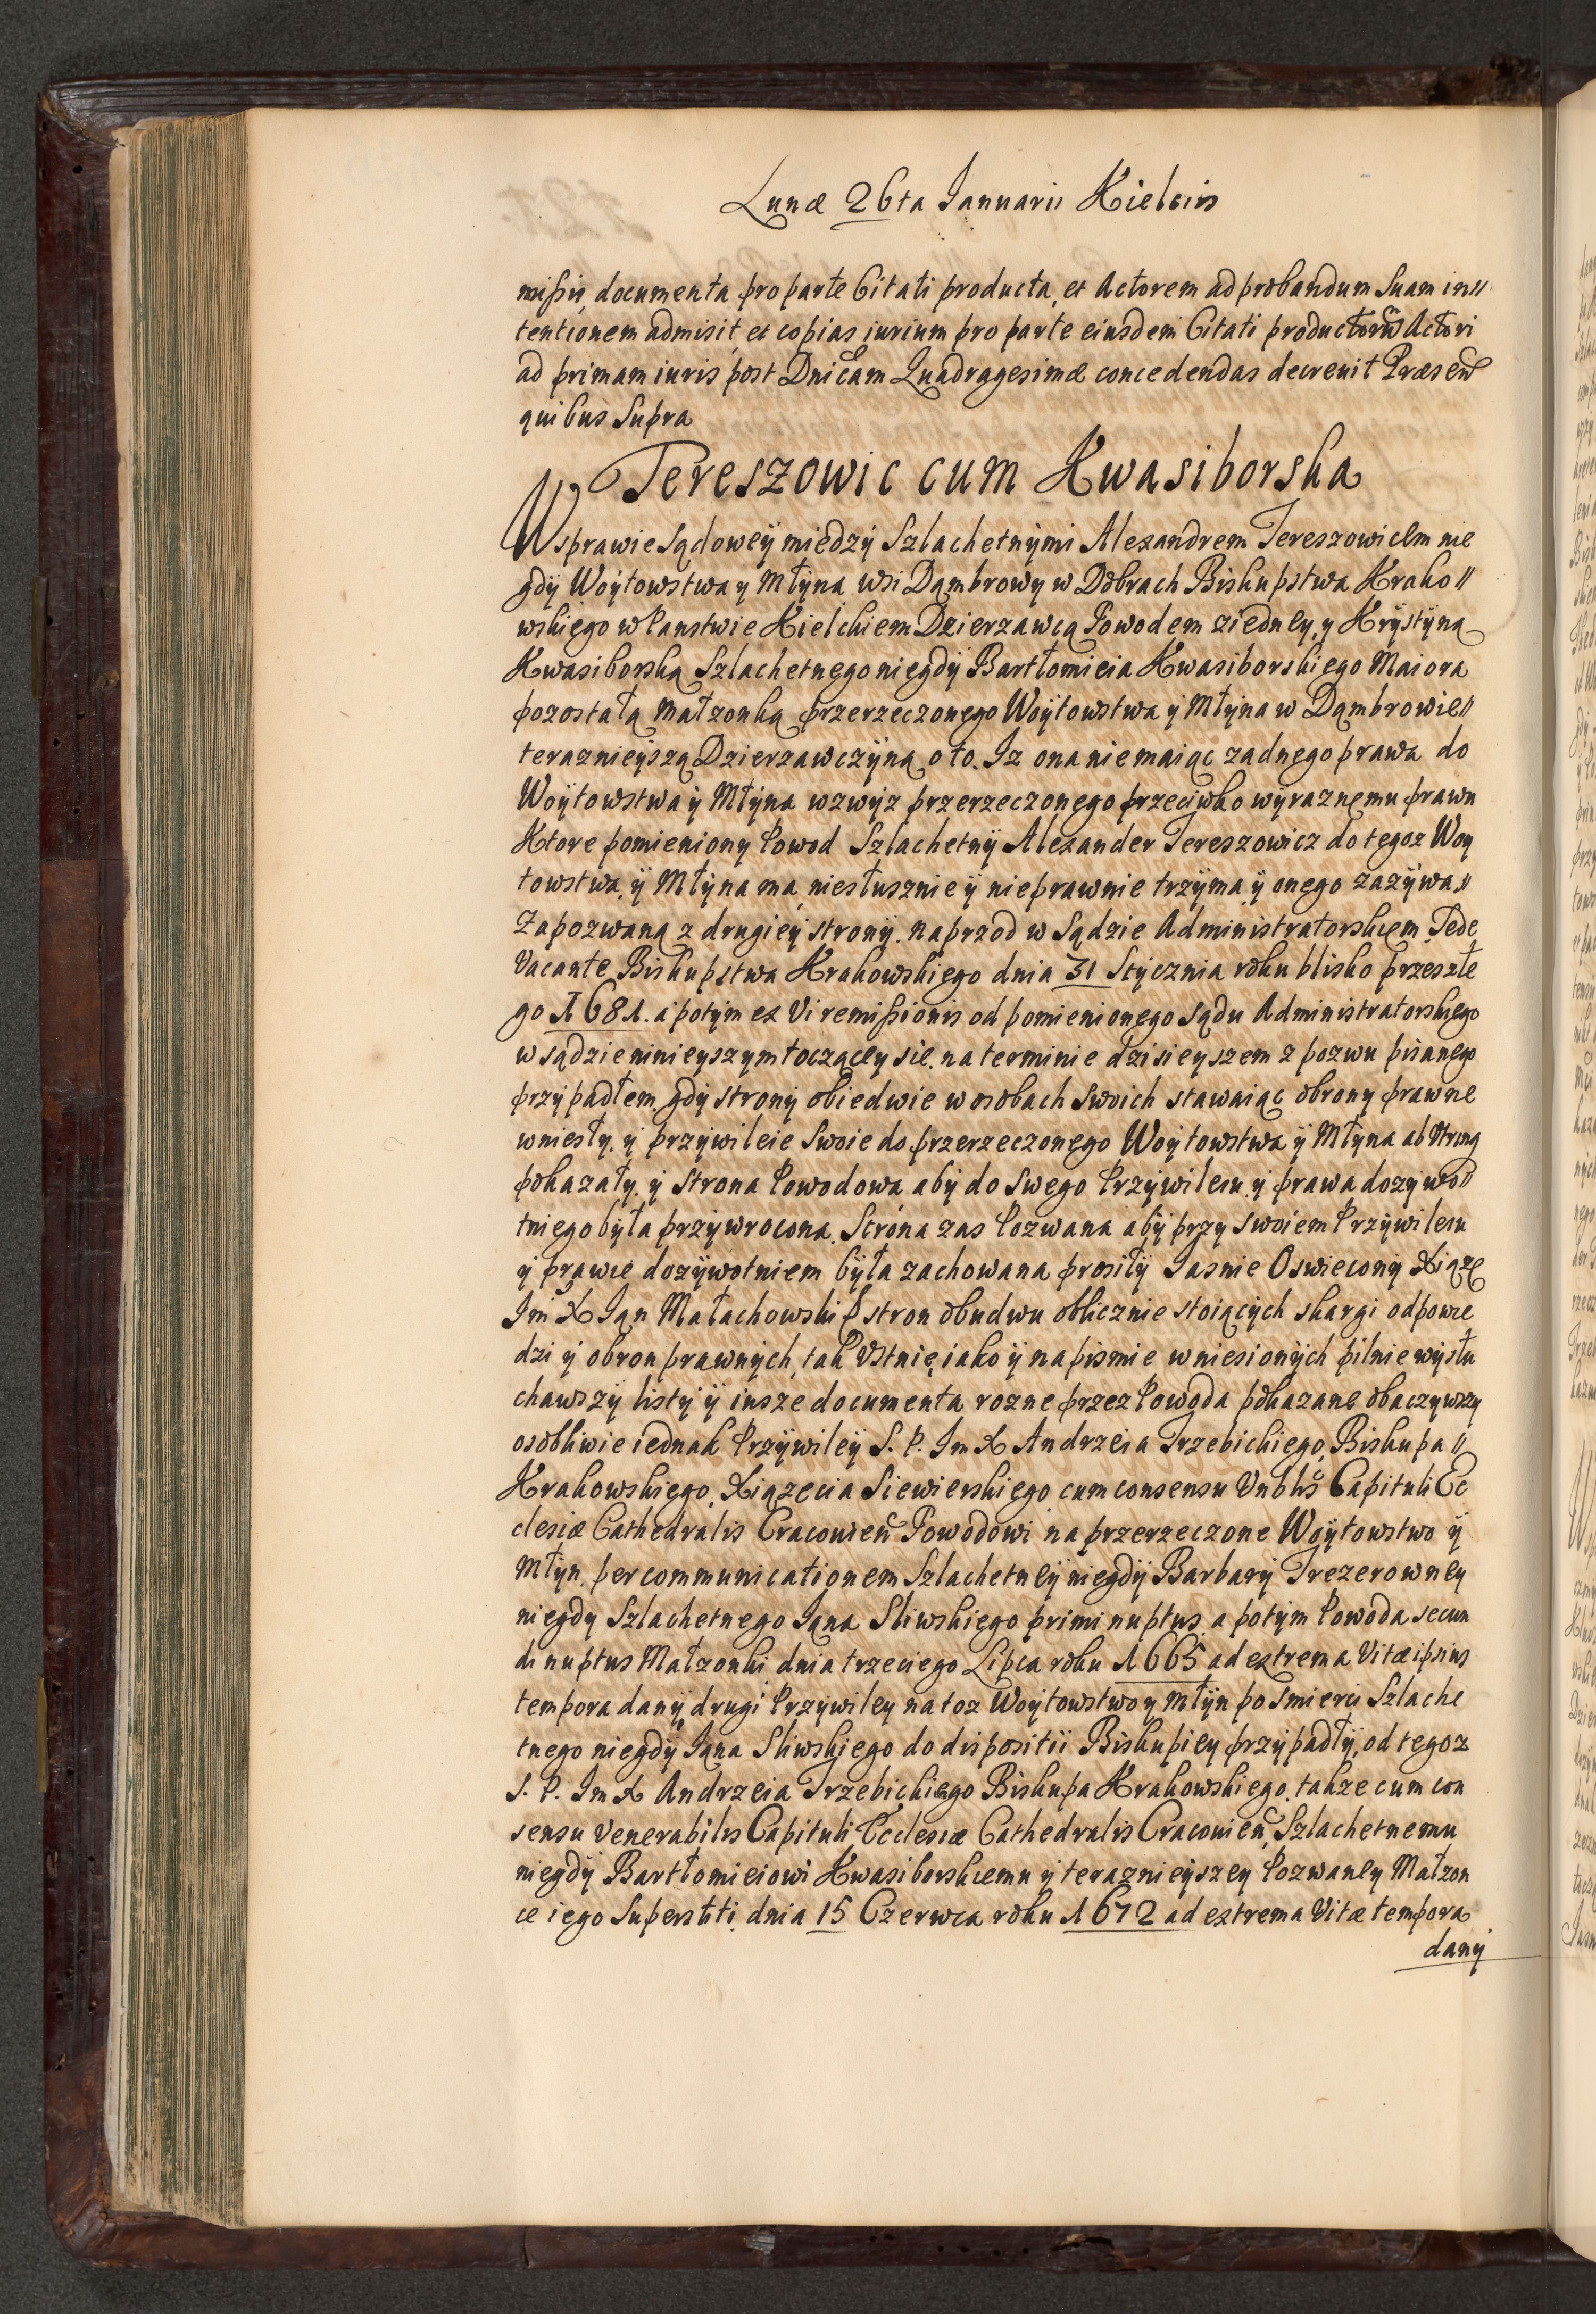 Lunæ 26ta Ianuarii Kielciis
missis, documenta pro parte Citati producta, et Actorem ad probandum Suam in//
tentionem admisit, et copias iurium pro parte eiusdem Citati productorũ Actori
ad primam iuris post Dnicam Quadragesimæ concedendas decreuit Præsen̄
quibus Supra
Tereszowic cum Kwasiborska
W sprawie Sądoweÿ miedzÿ Szlachetnÿmi Alexandrem Tereszowicem nie
gdÿ Woÿtowstwa y Młÿna wsi Dąmbrowy w Dobrach Biskupstwa Krako//
wskiego w Panstwie Kielckiem Dzierzawcą Powodem ziedney, y Krÿstÿną
Kwasiborską Szlachetnego niegdÿ Bartłomieia Kwasiborskiego Maiora
pozostałą Małzonką przerzeczonego Woÿtowstwa ÿ Młÿna w Dąmbrowie//
teraznieÿszą Dzierzawczÿną o to. Iz ona nie maiąc zadnego prawa do
Woÿtowstwa ÿ Młÿna wzwÿz przerzeczonego przeciwko wÿraznemu prawu
Ktore pomieniony Powod Szlachetnÿ Alexander Tereszowicz do tegoz Woy
towstwa ÿ Młÿna ma, niesłusznie ÿ nieprawnie trzÿma ÿ onego zazÿwa//
Zapozwaną z drugieÿ stronÿ. naprzod w Sądzie Administratorskiem Sede
Vacante Biskupstwa Krakowskiego dnia 31 Stÿcznia roku blisko przeszłe
go 1681. a potÿm ex Vi remissionis od pomienionego sądu Administratorskiego
w sądzie ninieyszym toczącey sie. na terminie dzisieyszem z pozwu pisanego
przÿpadłem. gdÿ stronÿ obiedwie w osobach swoich stawaiąc obrony prawne
wniesłÿ. ÿ przÿwileie Swoie do przerzeczonego Woÿtowstwa ÿ Młÿna ab utrinq
pokazałÿ. ÿ Strona Powodowa abÿ do swego Przÿwileiu ÿ prawa dozÿwo//
tniego bÿła przÿwrocona. Strona zas Pozwana abÿ przy swoiem Przÿwileiu
ÿ prawie dozÿwotniem bÿła zachowana prosiłÿ Iasnie Oswieconÿ Xiąze
Im X Ian Małachowski stron obudwu oblicznie stoiącÿch skargi odpowie
dzi ÿ obron prawnÿch, tak Vstnie, iako ÿ na pismie wniesionÿch pilnie wÿsłu
chawszÿ listÿ ÿ insze documenta rozne przez Powoda pokazane obaczywszy
osobliwie iednak Przÿwileÿ S. P. Im X Andrzeia Trzebickiego, Biskupa//
Krakowskiego, Xiązecia Siewierskiego cum consensu Vnblis Capituli Ec
clesiæ Cathedralis Cracouien̄ Powodowi na przerzeczone Woÿtowstwo ÿ
Młyn. per communicationem Szlachetneÿ niegdÿ Barbarÿ Trezerowney
niegdy Szlachetnego Iana Sliwskiego primi nuptus a potÿm Powoda secun
di nuptus Małzonki dnia trzeciego Lipca roku 1665 ad extrema Vitæ ipsius
tempora danÿ drugi Przÿwiley na toz Woÿtowstwo y Młÿn po Smierci Szlache
tnego niegdÿ Iana Sliwskiego do dispositii Biskupiey przÿpadłÿ, od tegoz
S. P. Im X Andrzeia Trzebickiego Biskupa Krakowskiego. takze cum con
sensu Venerabilis Capituli Ecclesiæ Cathedralis Cracouien̄, Szlachetnemu
niegdÿ Bartłomieiowi Kwasiborskiemu ÿ teraznieÿszey Pozwaney Małzon
ce iego Superstiti, dnia 15 Czerwca roku 1672 ad extrema Vitæ tempora
danÿ